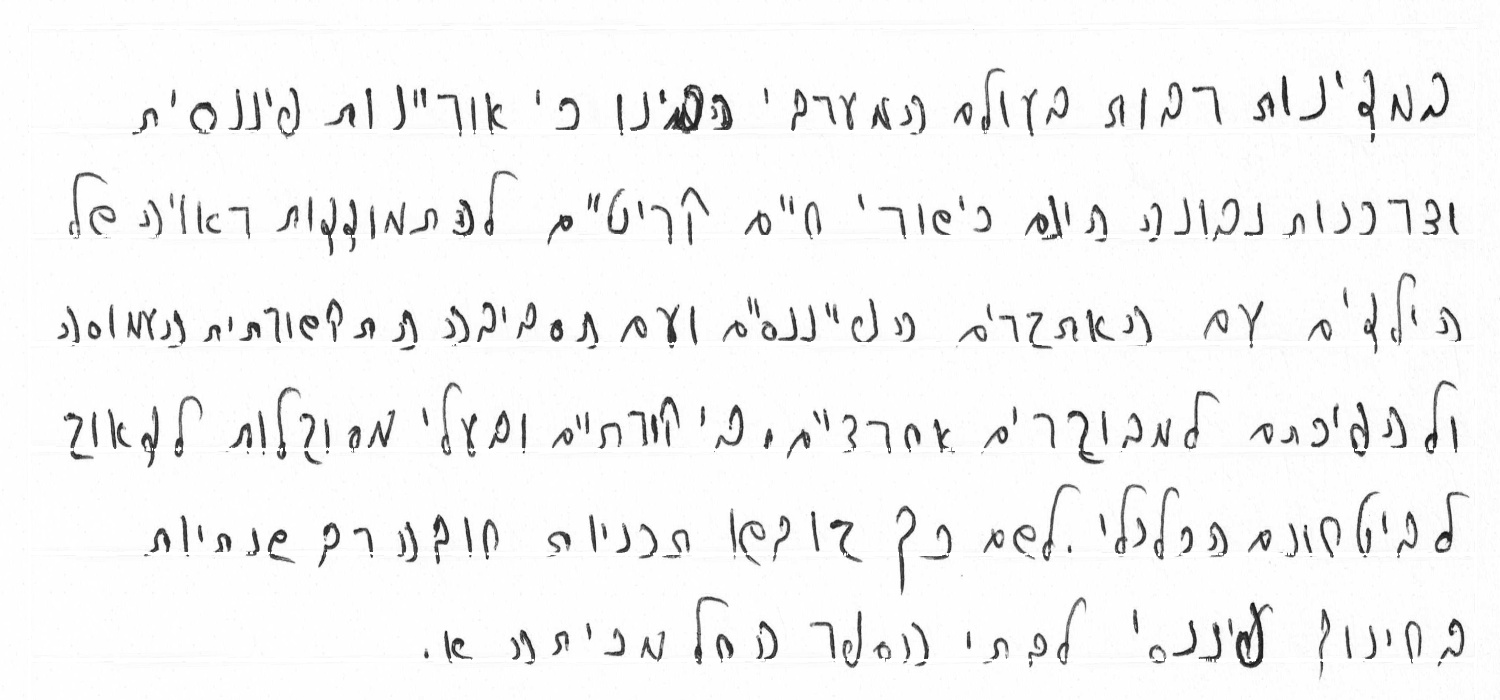 במדינות רבות בעולם המערבי הבינו כי אוריינות פיננסית
וצרכנות נבונה הינם כישורי חיים קריטיים להתמודדות ראויה של
הילדים עם האתגרים הפיננסיים ועם הסביבה התקשורתית העמוסה
ולהפיכתם למבוגרים אחראיים, ביקורתיים ובעלי מסוגלות לדאוג
לביטחונם הכלכלי. לשם כך גובשו תכניות חובה רב שנתיות
בחינוך פיננסי לבתי הספר החל מכיתה א.